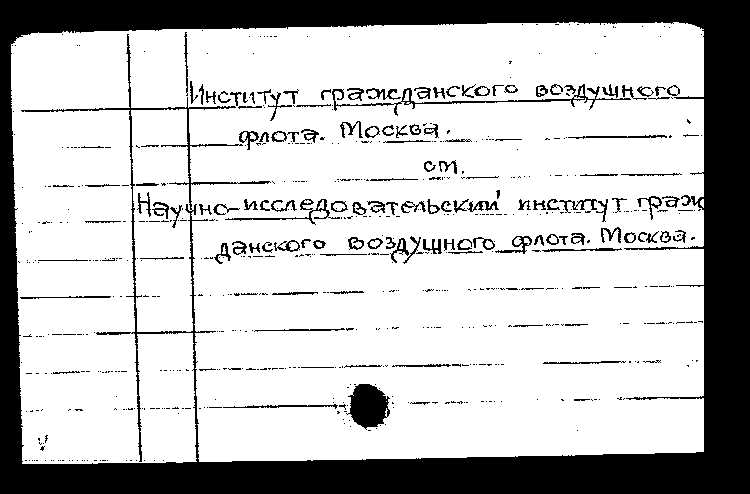 Институт гражданского воздушного
флота. Москва.
см.
Научно-исследовательский институт граж
данского воздушного флота. Москва.